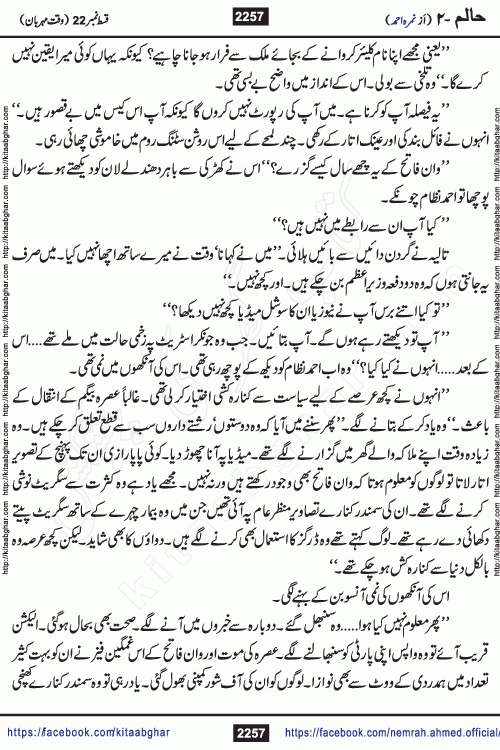 حالم -۲ (از نمرہ احمد) 2257 قسط نمبر 22 (وقت مہربان)
’’یعنی مجھے اپنا نام کلیئر کروانے کے بجائے ملک سے فرار ہو جانا چاہیے؟ کیونکہ یہاں کوئی میرا یقین نہیں
کرے گا۔‘‘ وہ تلخی سے بولی۔ اس کے انداز میں واضح بے بسی تھی۔
’’یہ فیصلہ آپ کو کرنا ہے۔ میں آپ کی رپورٹ نہیں کروں گا کیونکہ آپ اس کیس میں بے قصور ہیں۔‘‘
انہوں نے فائل بند کی اور عینک اتار کے رکھی۔ چند لمحے کے لیے اس روشن سٹنگ روم میں خاموشی چھائی رہی۔
’’وان فاتح کے یہ چھ سال کیسے گزرے؟‘‘ اس نے کھڑکی سے باہر دھندلے لان کو دیکھتے ہوئے سوال
پوچھا تو احمد نظام چونکے۔
’’کیا آپ ان سے رابطے میں نہیں ہیں؟‘‘
تالیہ نے گردن دائیں سے بائیں ہلائی۔ ’’میں نے کہا نا‘ وقت نے میرے ساتھ اچھا نہیں کیا۔ میں صرف
یہ جانتی ہوں کہ وہ دو دفعہ وزیراعظم بن چکے ہیں۔ اور کچھ نہیں۔‘‘
’’تو کیا اتنے برس آپ نے نیوز یا ان کا سوشل میڈیا کچھ نہیں دیکھا؟‘‘
’’آپ تو دیکھتے رہے ہوں گے۔ آپ بتائیں۔ جب وہ جونکر اسٹریٹ پہ زخمی حالت میں ملے تھے....اس
کے بعد.....انہوں نے کیا کیا؟‘‘ وہ اب احمد نظام کو دیکھ کے پوچھ رہی تھی۔ اس کی آنکھوں میں نمی تھی۔
’’انہوں نے کچھ عرصے کے لیے سیاست سے کنارہ کشی اختیار کر لی تھی۔ غالباً عصرہ بیگم کے انتقال کے
باعث۔‘‘ وہ یاد کر کے بتانے لگے۔ ’’پھر سننے میں آیا کہ وہ دوستوں‘ رشتے داروں سب سے قطع تعلق کر چکے ہیں۔ وہ
زیادہ وقت اپنے ملاکہ والے گھر میں گزارنے لگے تھے۔ میڈیا پہ آنا چھوڑ دیا۔ کوئی پاپارازی ان تک پہنچ کے تصویر
اتار لاتا تو لوگوں کو معلوم ہوتا کہ وان فاتح ابھی وجود رکھتے ہیں ورنہ نہیں۔ مجھے یاد ہے وہ کثرت سے سگریٹ نوشی
کرنے لگے تھے۔ ان کی سمندر کنارے تصاویر منظر عام پہ آئی تھیں جن میں وہ بیمار چہرے کے ساتھ سگریٹ پیتے
دکھائی دے رہے تھے۔ لوگ کہتے تھے وہ ڈرگز کا استعمال بھی کرنے لگے ہیں۔ دواؤں کا بھی شاید۔ لیکن کچھ عرصہ وہ
بالکل دنیا سے کنارہ کش ہو چکے تھے۔‘‘
اس کی آنکھوں کی نمی آنسو بن کے بہنے لگی۔
’’پھر معلوم نہیں کیا ہوا.....وہ سنبھل گئے۔ دوبارہ سے خبروں میں آنے لگے۔ صحت بھی بحال ہو گئی۔ الیکشن
قریب آئے تو وہ واپس اپنی پارٹی کو سنبھالنے لگے۔ عصرہ کی موت اور وان فاتح کے اس غمگین فیز نے ان کو بہت کثیر
تعداد میں ہمدردی کے ووٹ سے بھی نوازا۔ لوگوں کو ان کی آف شور کمپنی بھول گئی۔ یاد رہی تو وہ سمندر کنارے کھنچی
https://facebook.com/kitaabghar 2257 https://facebook.com/nemrah.ahmed.official/
http://kitaabghar.com http://kitaabghar.com http://kitaabghar.com http://kitaabghar.com
http://kitaabghar.com http://kitaabghar.com http://kitaabghar.com http://kitaabghar.com